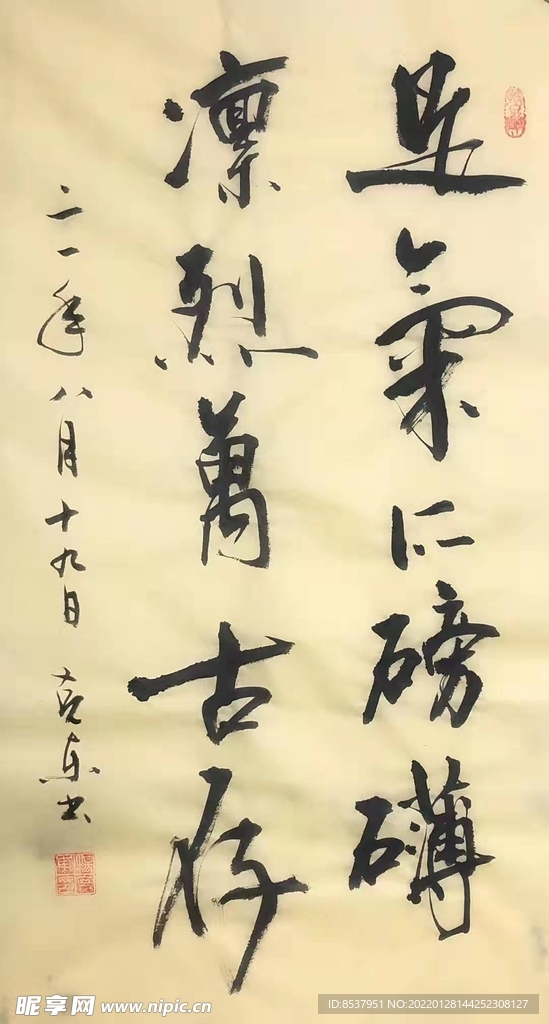 是氣所磅礴
凛烈萬古存
二一年八月十九日 克东书
昵享网 www.nipic.cn
ID:8537951 NO:20220128144252308127